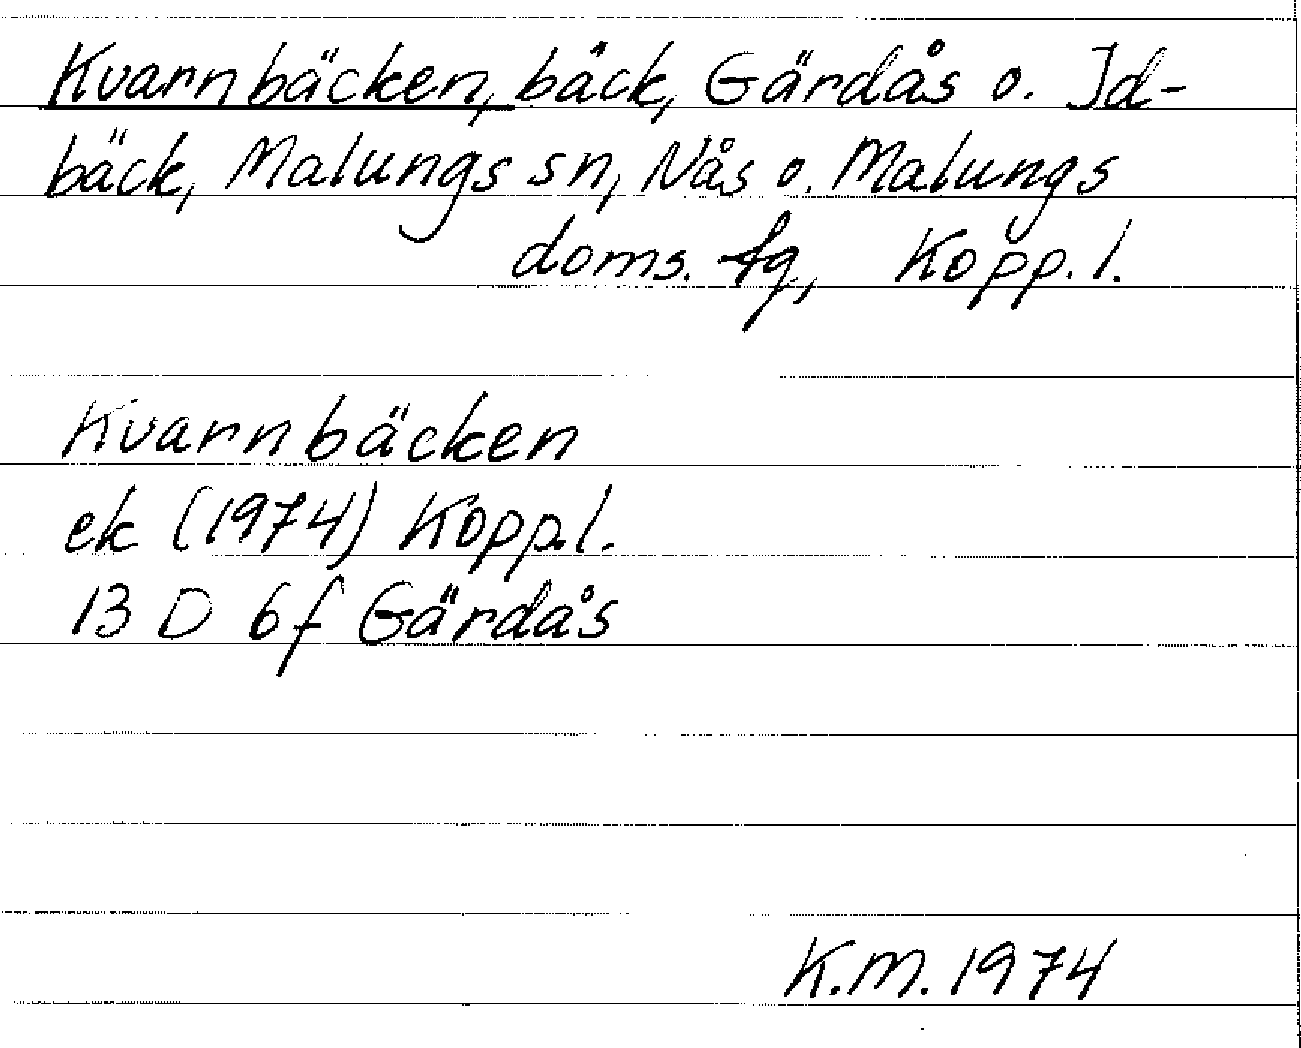 Kvarnbäcken, bäck, Gärdås o. Id-
bäck, Malungs sn, Nås o. Malungs
doms. fg, Kopp. l.
Kvarnbäcken
ek (1974) Kopp.l.
13 D 6f Gärdås
K.M. 1974